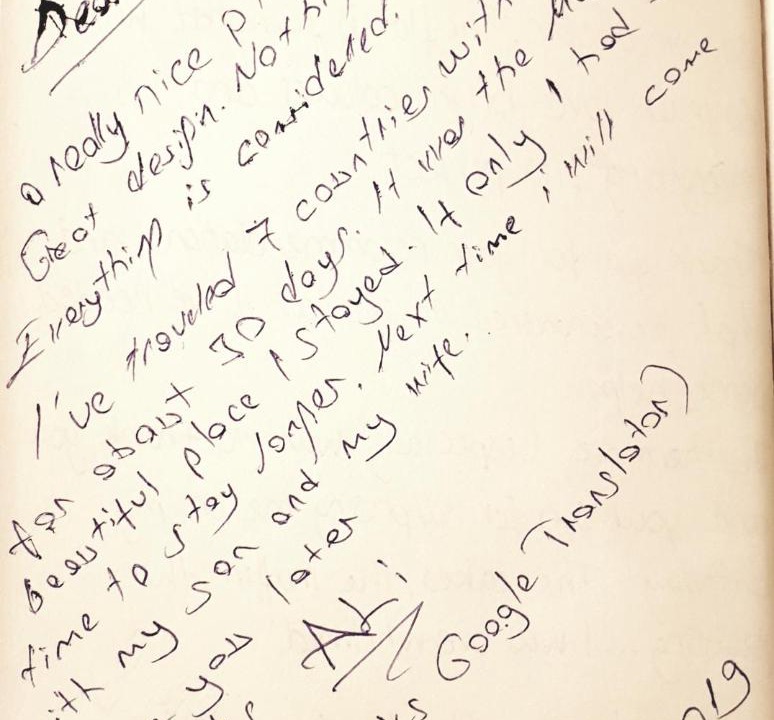 Dear
a really nice p
Great design. Nothi
Everything is considered.
I've traveled 7 countries with
for about 30 days. It was the
beautiful place i stayed. If only I had
time to stay longer. Next time i will come
with my son and my wife..
you later
(Google Translator)